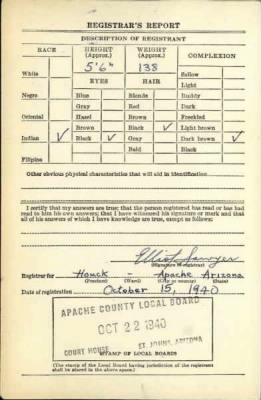 REGISTRAR'S REPORT
DESCRIPTION OF REGISTRANT
RACE HEIGHT (Approx.) WEIGHT (Approx.) COMPLEXION
5'6" 138
White Sallow
EYES HAIR Light
Negro Blue Blonde Ruddy
Gray Red Dark
Oriental Hazel Brown Freckled
Brown Black ✓ Light brown
Indian ✓ Black ✓ Gray Dark brown ✓
Bald Black
Filipino
Other obvious physical characteristics that will aid in identification
I certify that my answers are true; that the person registered has read or has had
read to him his own answers; that I have witnessed his signature or mark and that
all of his answers of which I have knowledge are true, except as follows:
Elliot Sawyer
(Signature of registrar)
Registrar for Houck - Apache Arizona
(Precinct) (Ward) (City or county) (State)
Date of registration October 15, 1940
APACHE COUNTY LOCAL BOARD
OCT 22 1940
COURT HOUSE ST. JOHNS, ARIZONA
(STAMP OF LOCAL BOARD)
(The stamp of the Local Board having jurisdiction of the registrant
shall be placed in the above space.)